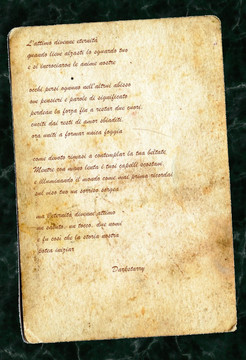 L'attimo divenne eternità
quando lieve alzasti lo sguardo tuo
e si incrociarono le anime nostre
occhi persi ognuno nell'altrui abisso
non pensieri e parole di significato
perdean la forza fin a restar due cuori,
cuciti dai resti di amor sbiaditi
ora uniti a formar unica foggia
come devoto rimasi a contemplar la tua beltate,
Mentre con mano lenta i tuoi capelli scostavi
e illuminando il mondo come mai prima ricordai
sul viso tuo un sorriso sorgea
ma l'eternità divenne attimo
un saluto, un tocco, due nomi
e fu così che la storia nostra
potea iniziar
Darkstarry